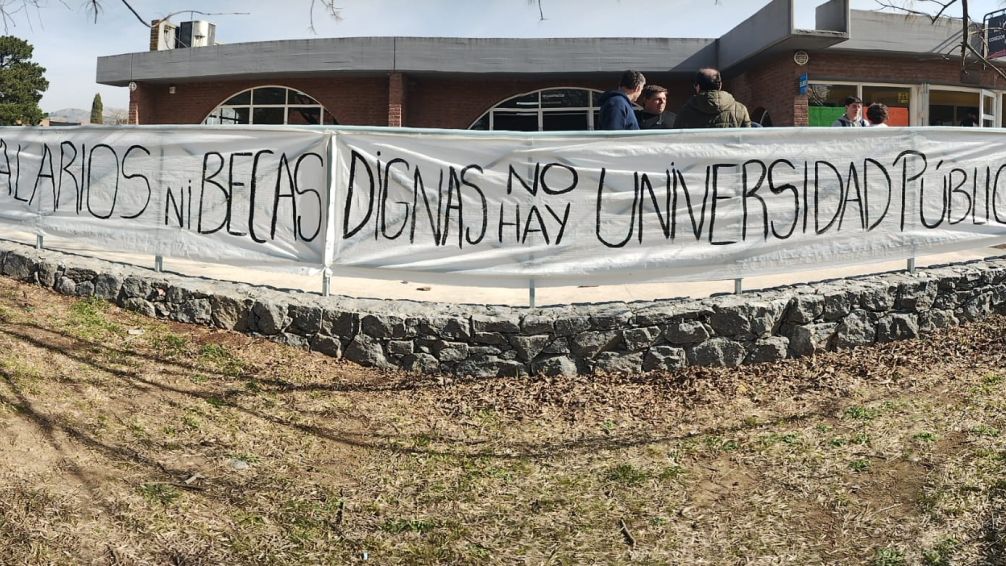 ALARIOS Ni BECAS DIGNAS NO HAY UNiVERSIDAD PÚBLIC